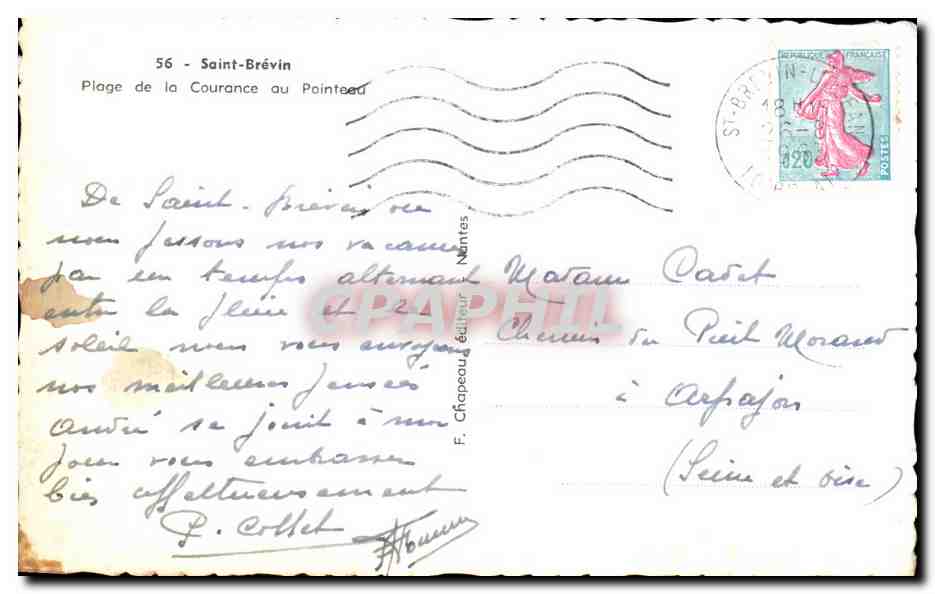 56 - Saint-Brévin
Plage de la Courance au Pointeau
REPUBLIQUE FRANÇAISE
0,20
POSTES
18 H
De Saint-Brévin ou
nous passons nos vacances
par un temps alternant
entre la pluie et le
soleil nous vous envoyons
nos meilleures pensées
André se joint à moi
pour vous embrasser
bien affectueusement
P. Collet
F. Chapeau, éditeur - Nantes
CPAPHIL
Madame Cadet
Chemin du Petit Morand
à Arpajon
(Seine et Oise)